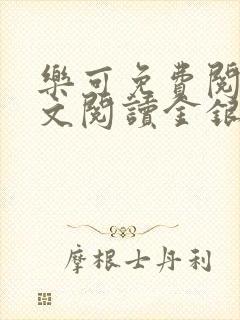 樂可免費閱
文閱讀金銀
摩根士丹利